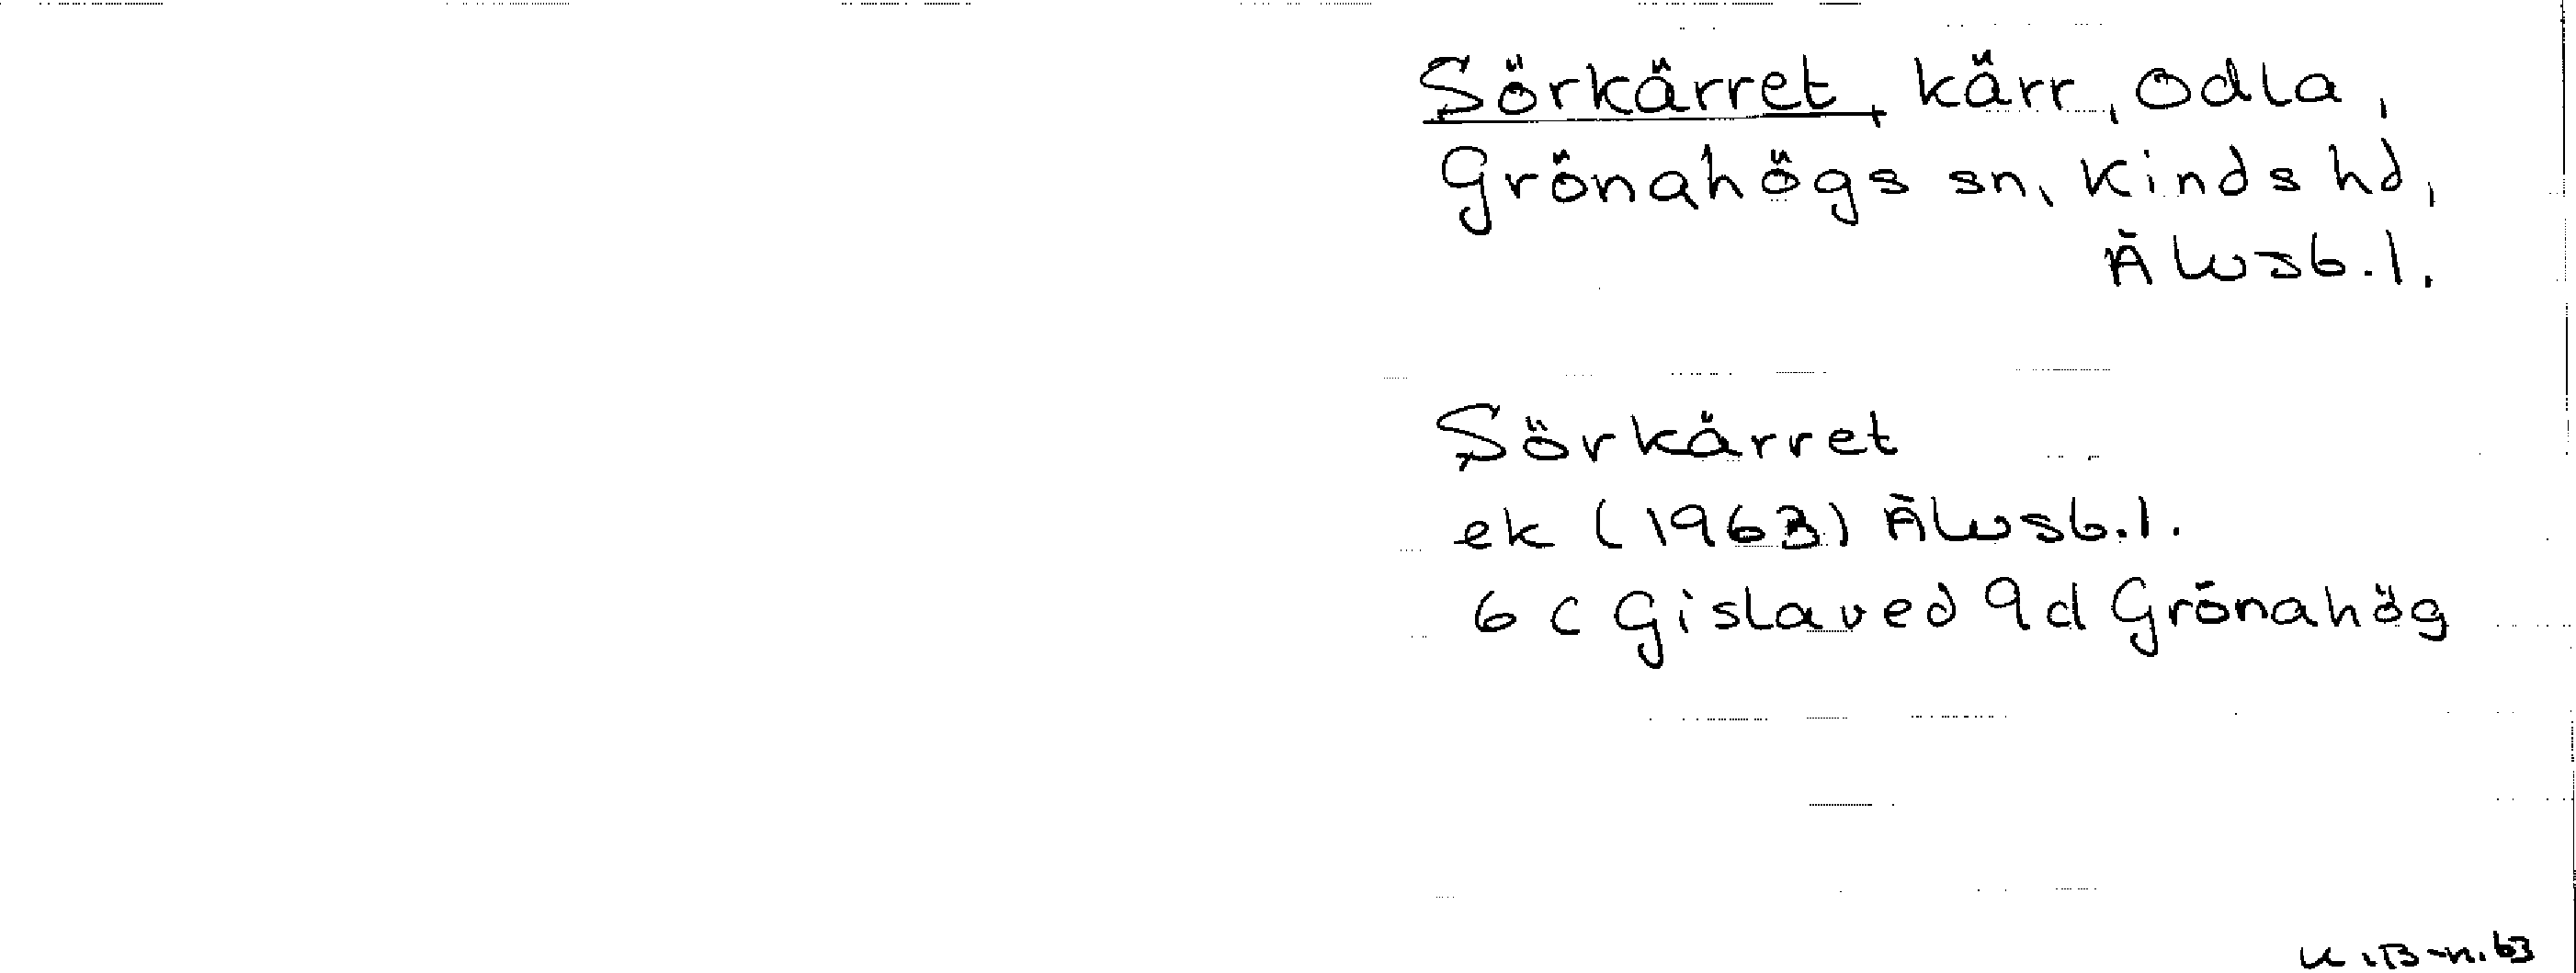 Sörkärret, kärr, Odla,
Grönahögs sn, Kinds hd,
Älvsb.l.
Sörkärret
ek (1963) Älvsb.l.
6 C Gislaved 9d Grönahög
K.B-n.63